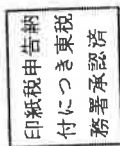 印紙税申告納
付につき東税
務署承認済